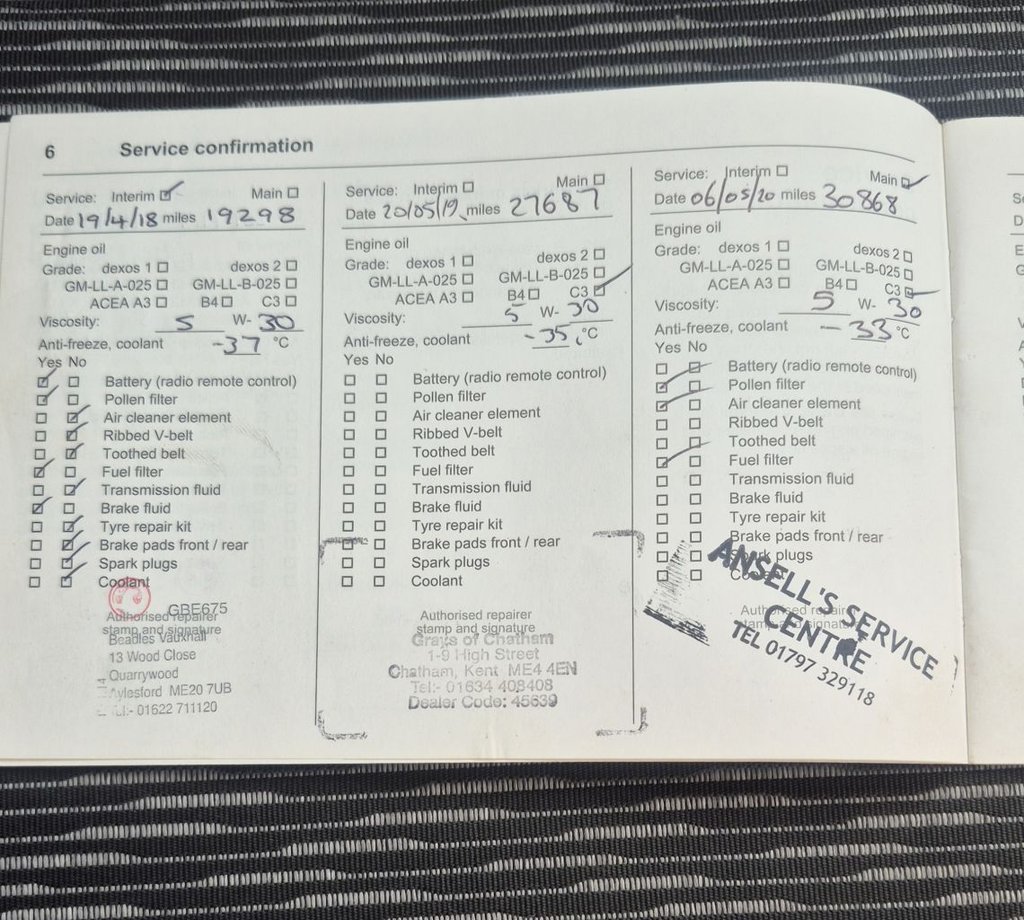 6 Service confirmation
Service: Interim ☑ Main ☐
Date 19/4/18 miles 19298
Engine oil
Grade: dexos 1 ☐ dexos 2 ☐
GM-LL-A-025 ☐ GM-LL-B-025 ☐
ACEA A3 ☐ B4 ☐ C3 ☐
Viscosity: 5 W- 30
Anti-freeze, coolant -37 °C
Yes No
☑ ☐ Battery (radio remote control)
☑ ☐ Pollen filter
☐ ☑ Air cleaner element
☐ ☑ Ribbed V-belt
☐ ☑ Toothed belt
☑ ☐ Fuel filter
☐ ☑ Transmission fluid
☑ ☐ Brake fluid
☐ ☑ Tyre repair kit
☐ ☑ Brake pads front / rear
☐ ☑ Spark plugs
☐ ☑ Coolant
GBE675
Authorised repairer
stamp and signature
Beadles Vauxhall
13 Wood Close
Quarrywood
Aylesford ME20 7UB
Tel:- 01622 711120
Service: Interim ☐ Main ☐
Date 20/05/19 miles 27687
Engine oil
Grade: dexos 1 ☐ dexos 2 ☐
GM-LL-A-025 ☐ GM-LL-B-025 ☐
ACEA A3 ☐ B4 ☐ C3 ☑
Viscosity: 5 W- 30
Anti-freeze, coolant -35 °C
Yes No
☐ ☐ Battery (radio remote control)
☐ ☐ Pollen filter
☐ ☐ Air cleaner element
☐ ☐ Ribbed V-belt
☐ ☐ Toothed belt
☐ ☐ Fuel filter
☐ ☐ Transmission fluid
☐ ☐ Brake fluid
☐ ☐ Tyre repair kit
☐ ☐ Brake pads front / rear
☐ ☐ Spark plugs
☐ ☐ Coolant
Authorised repairer
stamp and signature
Grays of Chatham
1-9 High Street
Chatham, Kent ME4 4EN
Tel:- 01634 408408
Dealer Code: 45639
Service: Interim ☐ Main ☑
Date 06/05/20 miles 30868
Engine oil
Grade: dexos 1 ☐ dexos 2 ☐
GM-LL-A-025 ☐ GM-LL-B-025 ☐
ACEA A3 ☐ B4 ☐ C3 ☑
Viscosity: 5 W- 30
Anti-freeze, coolant -33 °C
Yes No
☐ ☐ Battery (radio remote control)
☑ ☐ Pollen filter
☑ ☐ Air cleaner element
☐ ☐ Ribbed V-belt
☐ ☐ Toothed belt
☑ ☐ Fuel filter
☐ ☐ Transmission fluid
☐ ☐ Brake fluid
☐ ☐ Tyre repair kit
☐ ☐ Brake pads front / rear
☐ ☐ Spark plugs
☐ ☐ Coolant
Authorised repairer
stamp and signature
ANSELL'S SERVICE
CENTRE
TEL 01797 329118